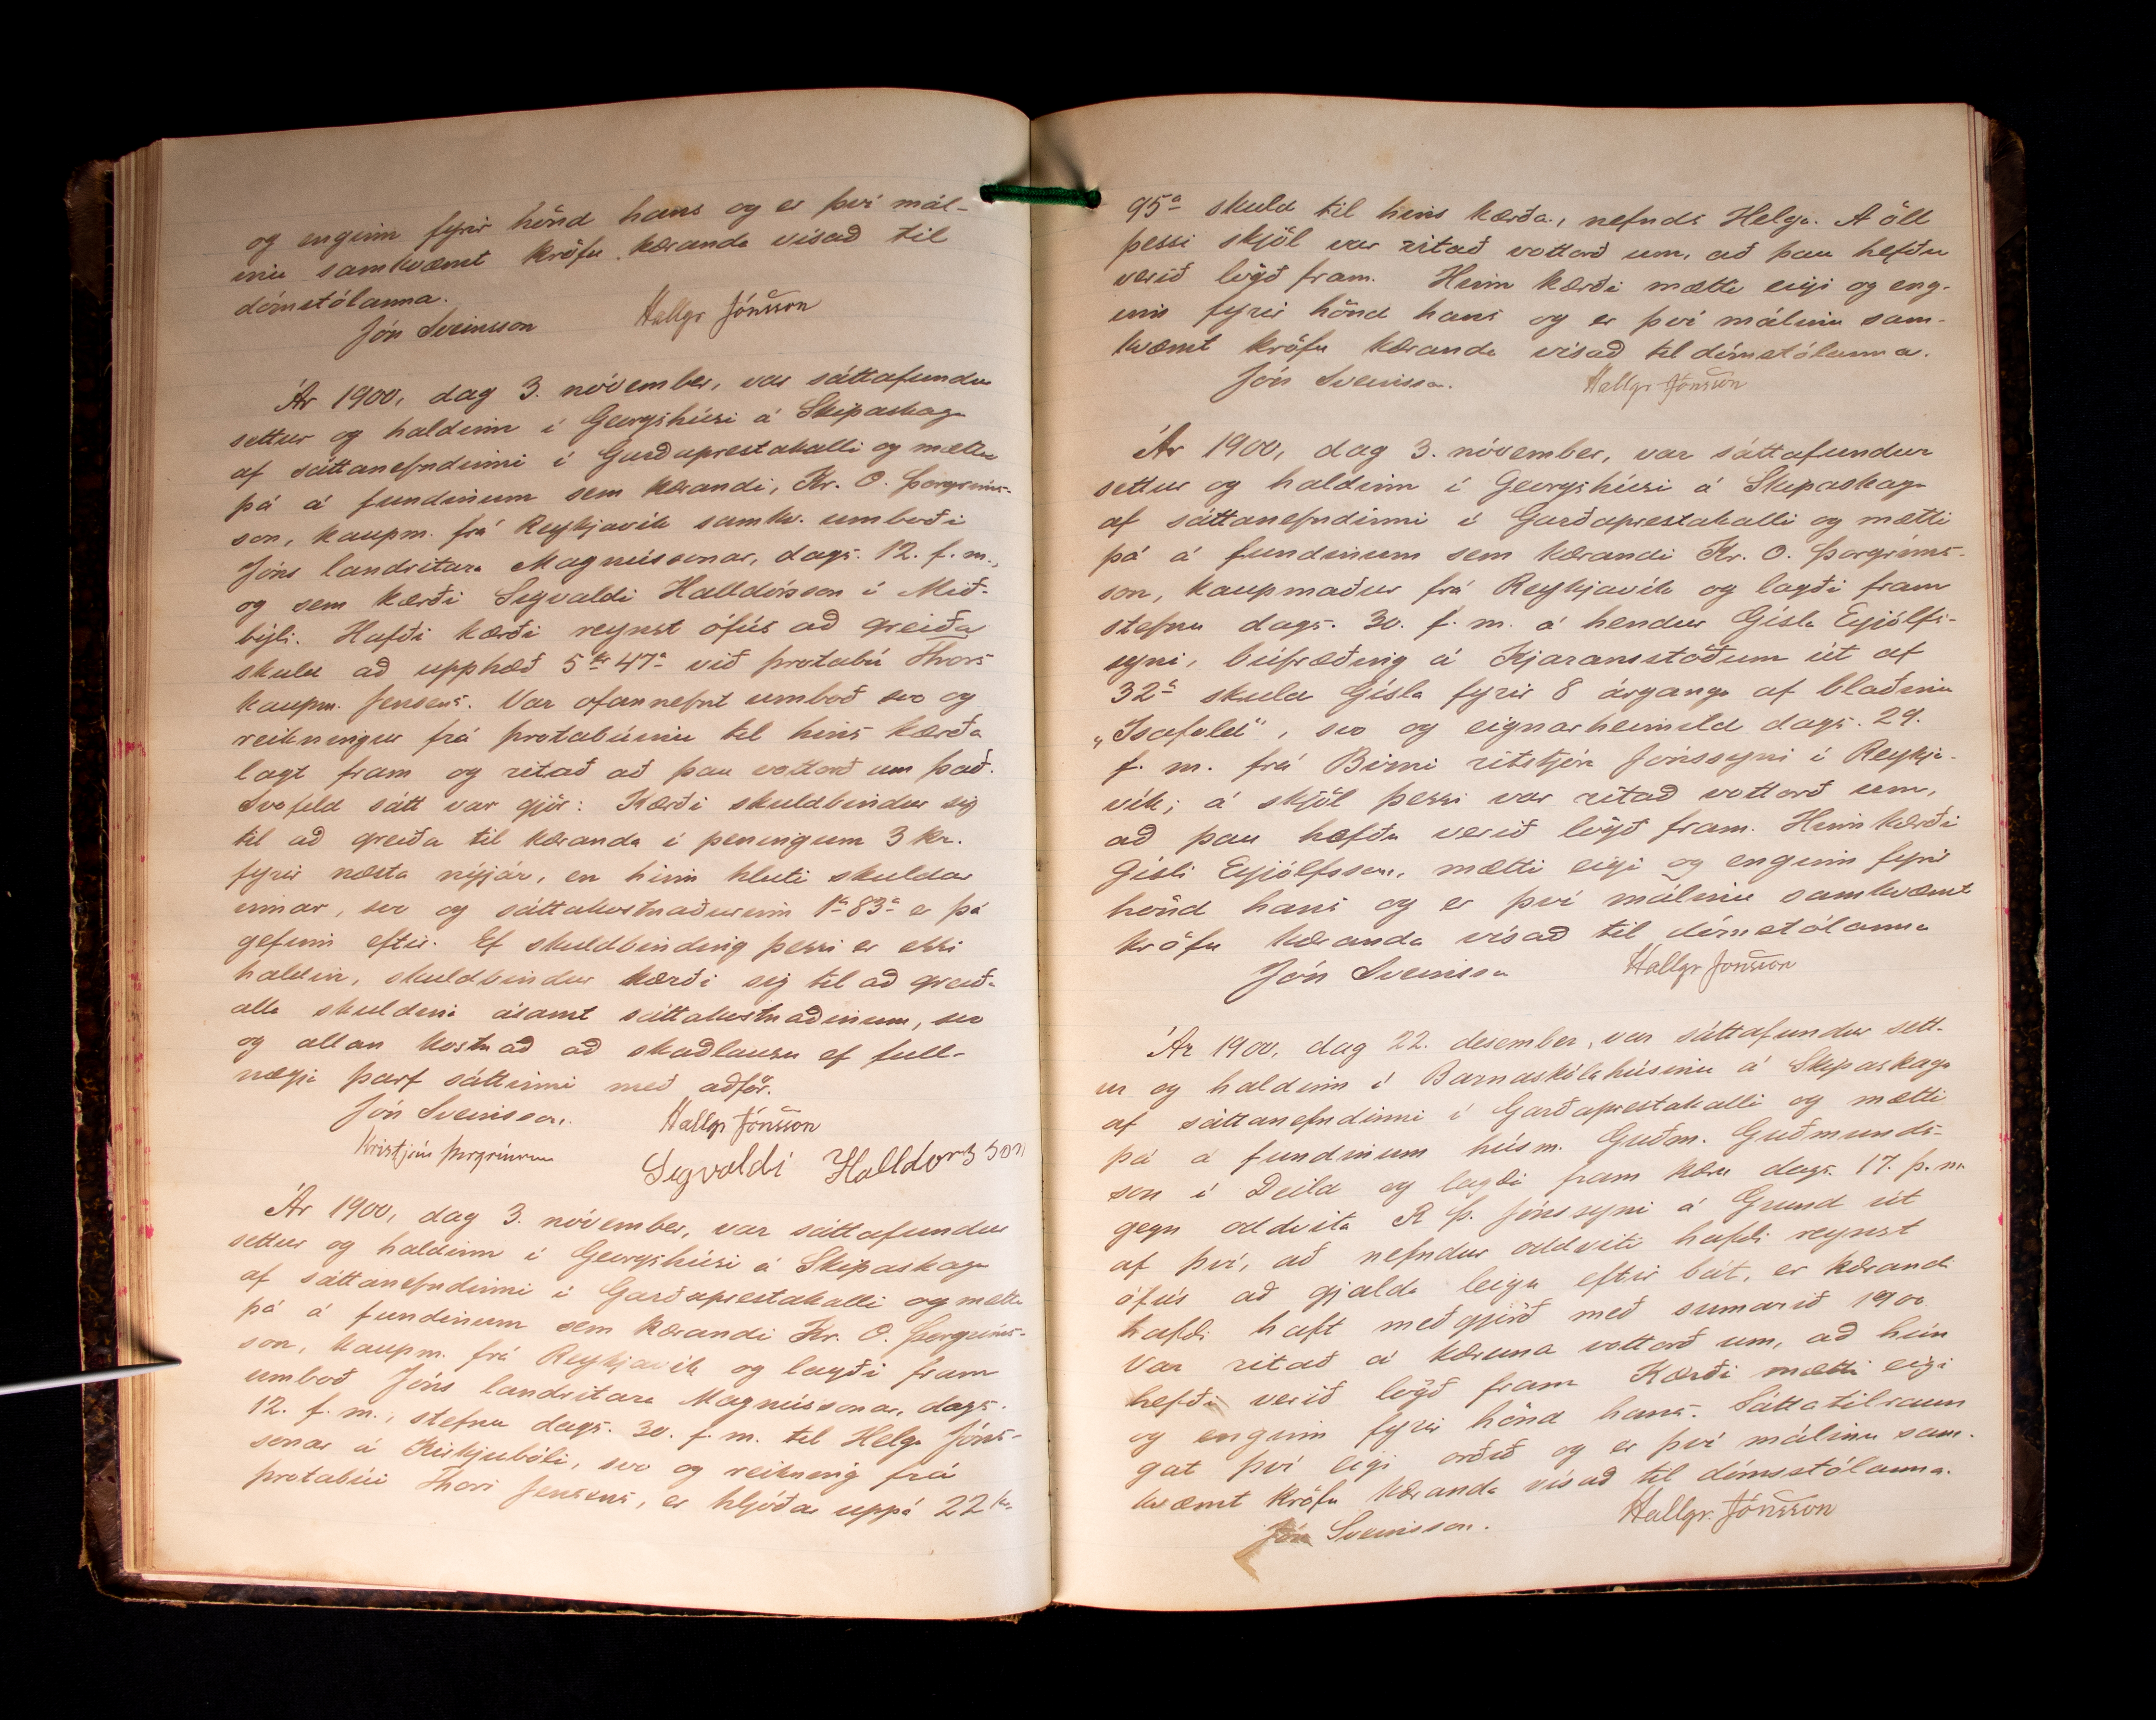 og enginn fyrir hönd hans og er því mál-
inu samkvæmt kröfu kæranda vísað til
dómstólanna.
Jón Sveinsson Hallgr Jónsson
Ár 1900, dag 3. nóvember, var sáttafundur
settur og haldinn í Georgshúsi á Skipaskaga
af sáttanefndinni í Garðaprestakalli og mætti
þá á fundinum sem kærandi, Kr. O. Þorgríms-
son, kaupm. frá Reykjavík samkv. umboði
Jóns landritara Magnússonar, dags. 12. f. m.,
og sem kærði Sigvaldi Halldórsson í Mið-
býli. Hafði kærði reynst ófús að greiða
skuld að upphæð 5 kr 47 a við þrotabú Thors
kaupm. Jensens. Var ofannefnt umboð svo og
reikningur frá þrotabúinu til hins kærða
lagt fram og ritað að þau vottorð um það.
Svofeld sátt var gjör: Kærði skuldbindur sig
til að greiða til kæranda í peningum 3 kr.
fyrir næsta nýjár, en hinn hluti skuldar
innar, svo og sáttakostnaðurinn 1 kr 83 a er þá
gefinn eftir. Ef skuldbinding þessi er ekki
haldin, skuldbindur kærði sig til að greiða
alla skuldina ásamt sáttakostnaðinum, svo
og allan kostnað að skaðlausu ef full-
nægja þarf sáttinni með aðför.
Jón Sveinsson. Hallgr Jónsson
Kristján Þorgrímsson Sigvaldi Halldorsson
Ár 1900, dag 3. nóvember, var sáttafundur
settur og haldinn í Georgshúsi á Skipaskaga
af sáttanefndinni í Garðaprestakalli og mætti
þá á fundinum sem kærandi Kr. O. Þorgríms-
son, kaupm. frá Reykjavík og lagði fram
umboð Jóns landritara Magnússonar, dags.
12. f. m., stefnu dags. 30. f. m. til Helga Jóns-
sonar á Kirkjubóli, svo og reikning frá
þrotabúi Thors Jensens, er hljóðar uppá 22 kr
95 a skuld til hins kærða, nefnds Helga. Á öll
þessi skjöl var ritað vottorð um, að þau hefðu
verið lögð fram. Hinn kærði mætti eigi og eng-
inn fyrir hönd hans og er því málinu sam-
kvæmt kröfu kæranda vísað til dómstólanna.
Jón Sveinsson. Hallgr Jónsson
Ár 1900, dag 3. nóvember, var sáttafundur
settur og haldinn í Georgshúsi á Skipaskaga
af sáttanefndinni í Garðaprestakalli og mætti
þá á fundinum sem kærandi Kr. O. Þorgríms-
son, kaupmaður frá Reykjavík og lagði fram
stefnu dags. 30. f. m. á hendur Gísla Eyjólfs-
syni, búfræðing á Kjaransstöðum út af
32 kr skuld Gísla fyrir 8 árganga af blaðinu
„Ísafold", svo og eignarheimild dags. 29.
f. m. frá Birni ritstjóra Jónssyni í Reykja-
vík; á skjöl þessi var ritað vottorð um,
að þau hefðu verið lögð fram. Hinn kærði
Gísli Eyjólfsson, mætti eigi og enginn fyrir
hönd hans og er því málinu samkvæmt
kröfu kæranda vísað til dómstólanna
Jón Sveinsson Hallgr Jónsson
Ár 1900, dag 22. desember, var sáttafundur sett-
ur og haldinn í Barnaskólahúsinu á Skipaskaga
af sáttanefndinni í Garðaprestakalli og mætti
þá á fundinum húsm. Guðm. Guðmunds-
son í Deild og lagði fram kæru dags. 17. þ. m.
gegn oddvita R Þ. Jónssyni á Grund út
af því, að nefndur oddviti hafði reynst
ófús að gjalda leigu eftir bát, er kærandi
hafði haft meðgjörð með sumarið 1900
Var ritað á kæruna vottorð um, að hún
hefði verið lögð fram Kærði mætti eigi
og enginn fyrir hönd hans. Sáttatilraun
gat því eigi orðið og er því málinu sam-
kvæmt kröfu kæranda vísað til dómsstólanna.
Jón Sveinsson. Hallgr. Jónsson